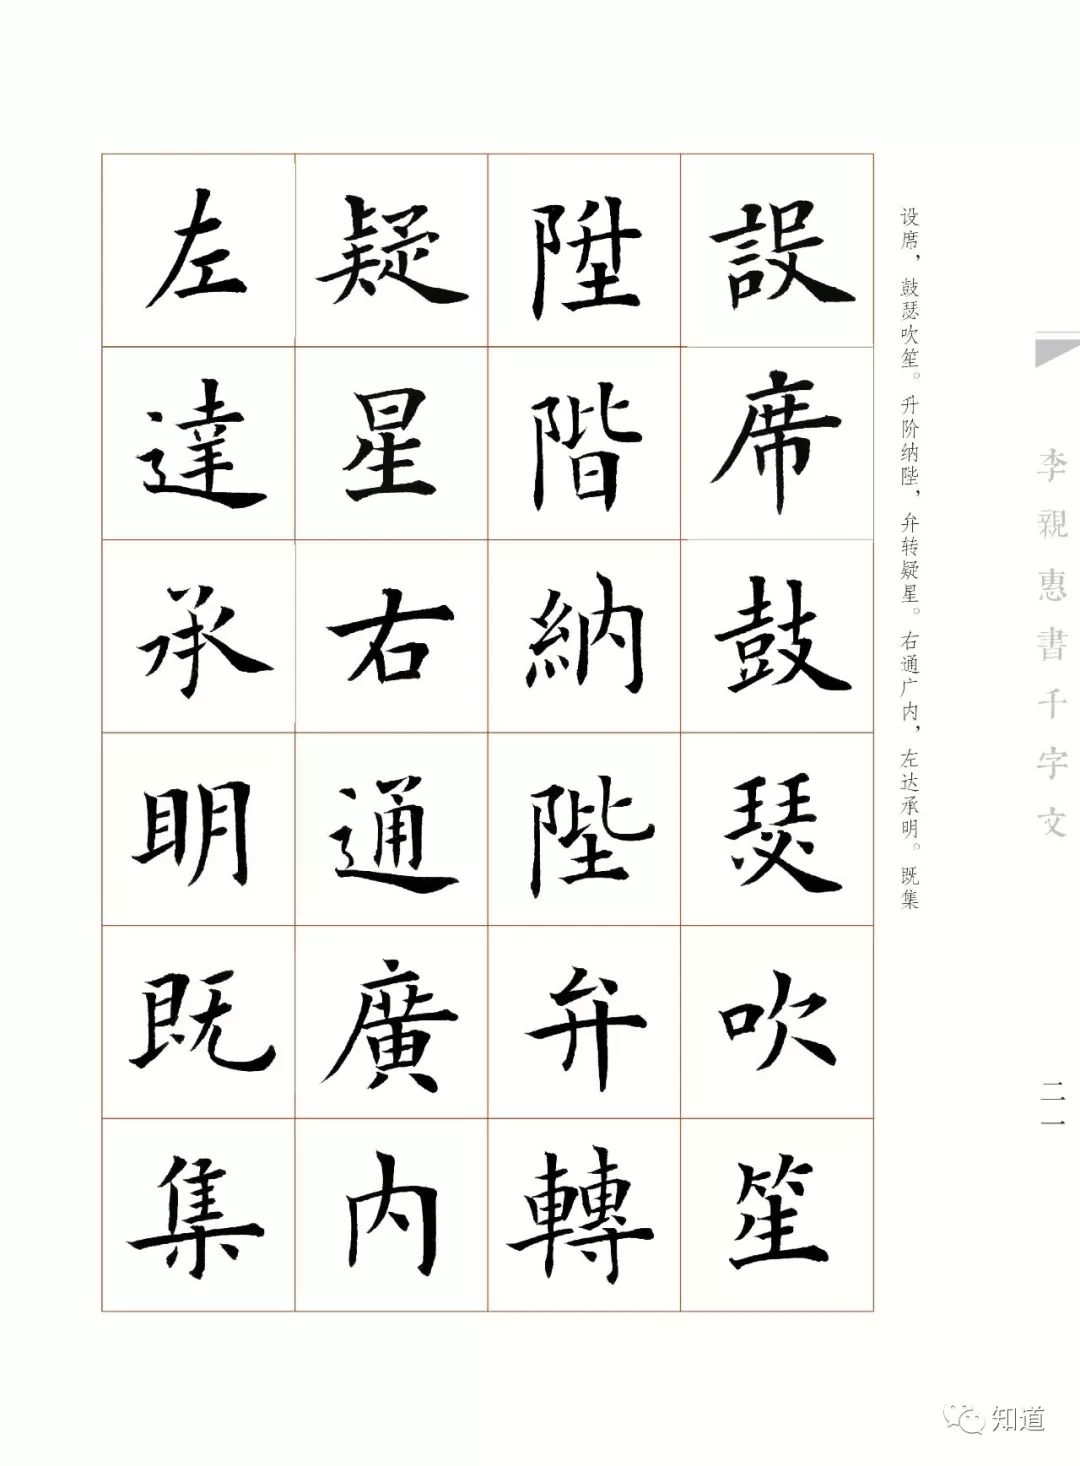 設席鼓瑟吹笙
陞階納陛弁轉
疑星右通廣内
左達承明既集
设席，鼓瑟吹笙。升阶纳陛，弁转疑星。右通广内，左达承明。既集
李親惠書千字文
二一
知道